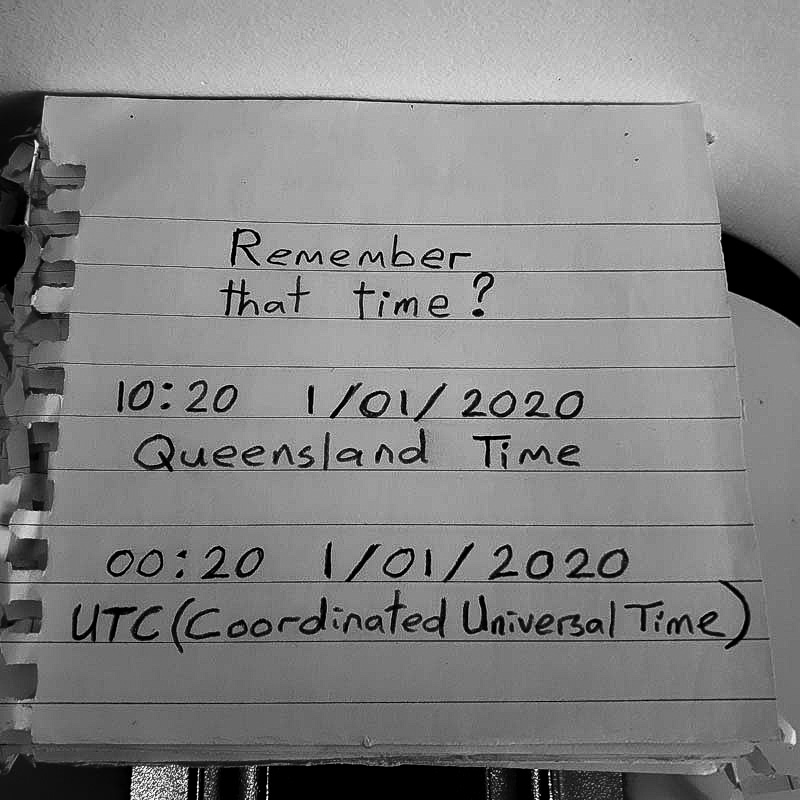 Remember
that time?
10:20 1/01/2020
Queensland Time
00:20 1/01/2020
UTC (Coordinated Universal Time)